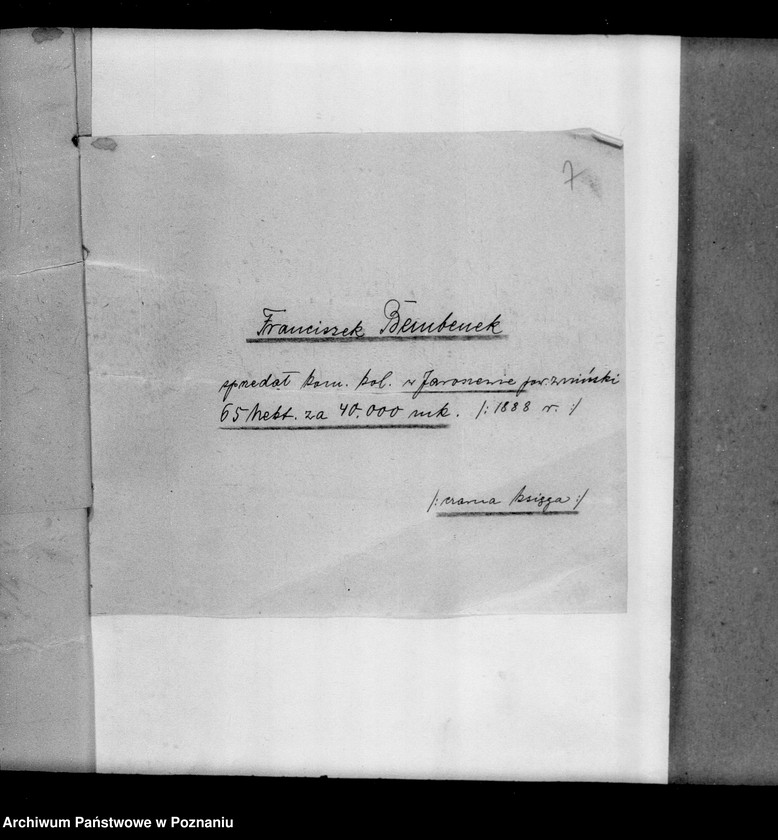 7
Franciszek Bembenek
sprzedał kom. kol. w Jaroszewie pow. żniński
65 hekt. za 40.000 mk. /: 1888 r. :/
/: czarna księga :/
Archiwum Państwowe w Poznaniu